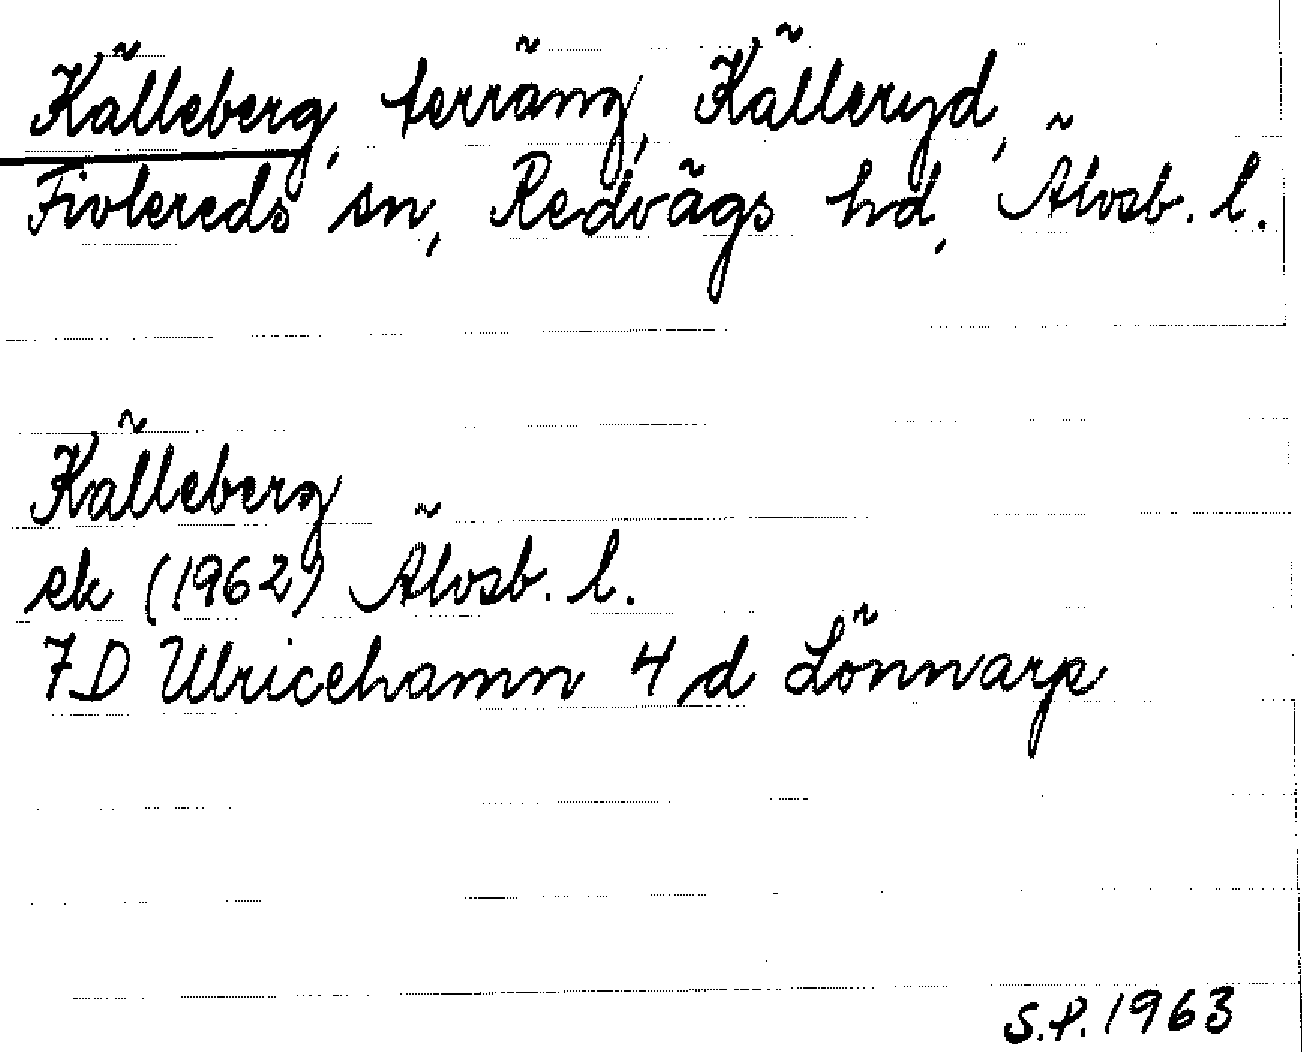 Källeberg, terräng, Källeryd,
Fivlereds sn, Redvägs hd, Älvsb. l.
Källeberg
ek (1962) Älvsb. l.
7D Ulricehamn 4 d Lönnarp
S.P. 1963